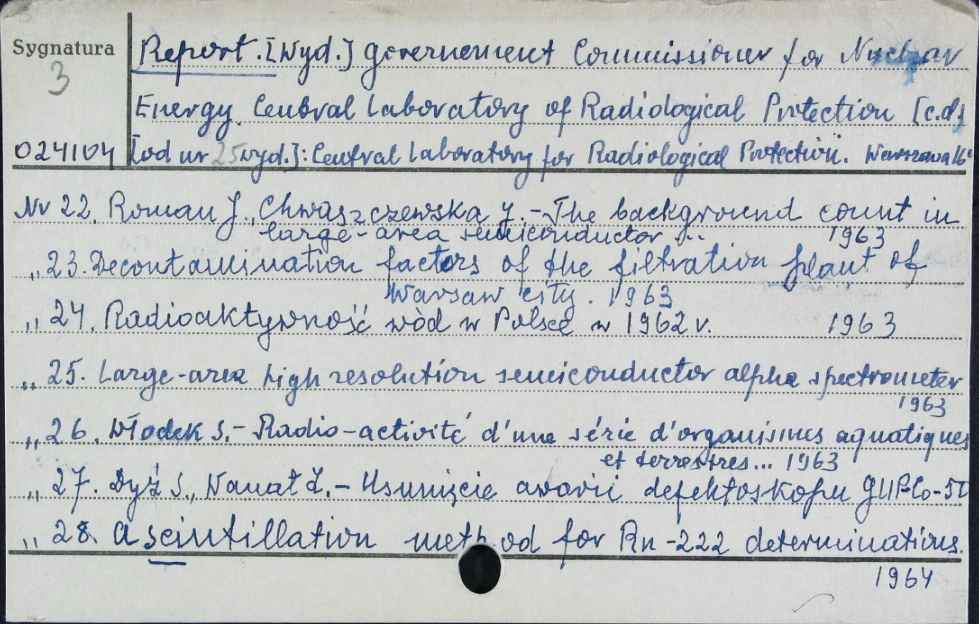 Sygnatura
3
024104
Report. [Wyd.] Governement Commissioner for Nuclear
Energy. Central Laboratory of Radiological Protection [c.d.]
[od nr 25 wyd.]: Central Laboratory for Radiological Protection. Warszawa 16°
Nr 22. Roman J., Chwaszczewska J. - The background count in
large-area semiconductor ... 1963
„ 23. Decontamination factors of the filtration plant of
Warsaw city. 1963
„ 24. Radioaktywność wód w Polsce w 1962 r. 1963
„ 25. Large-area high resolution semiconductor alpha spectrometer
1963
„ 26. Włodek S. - Radio-activité d'une série d'organismes aquatiques
et terrestres... 1963
„ 27. Dyż S., Wanat Z. - Usunięcie awarii defektoskopu GUPCo-50
„ 28. A scintillation method for Rn-222 determinations.
1964